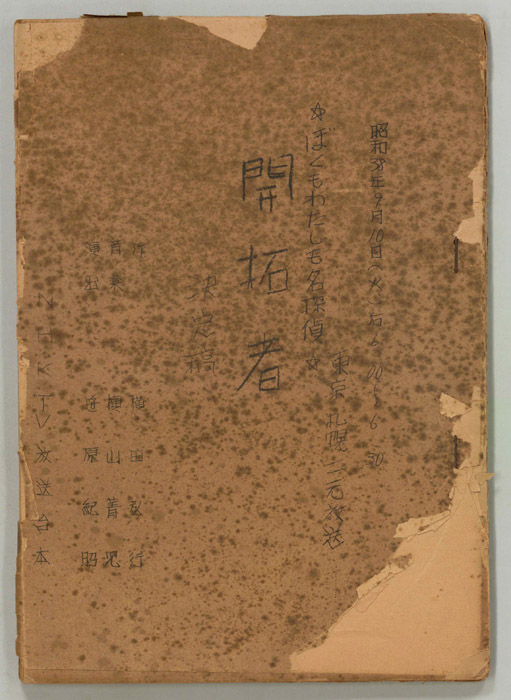 昭和38年9月10日(火)后6.00〜6.30
東京 札幌 二元放送
☆ぼくもわたしも名探偵☆
開拓者
決定稿
作 横田弘行
音楽 横山菁児
演出 笹原紀昭
NHKTV放送台本